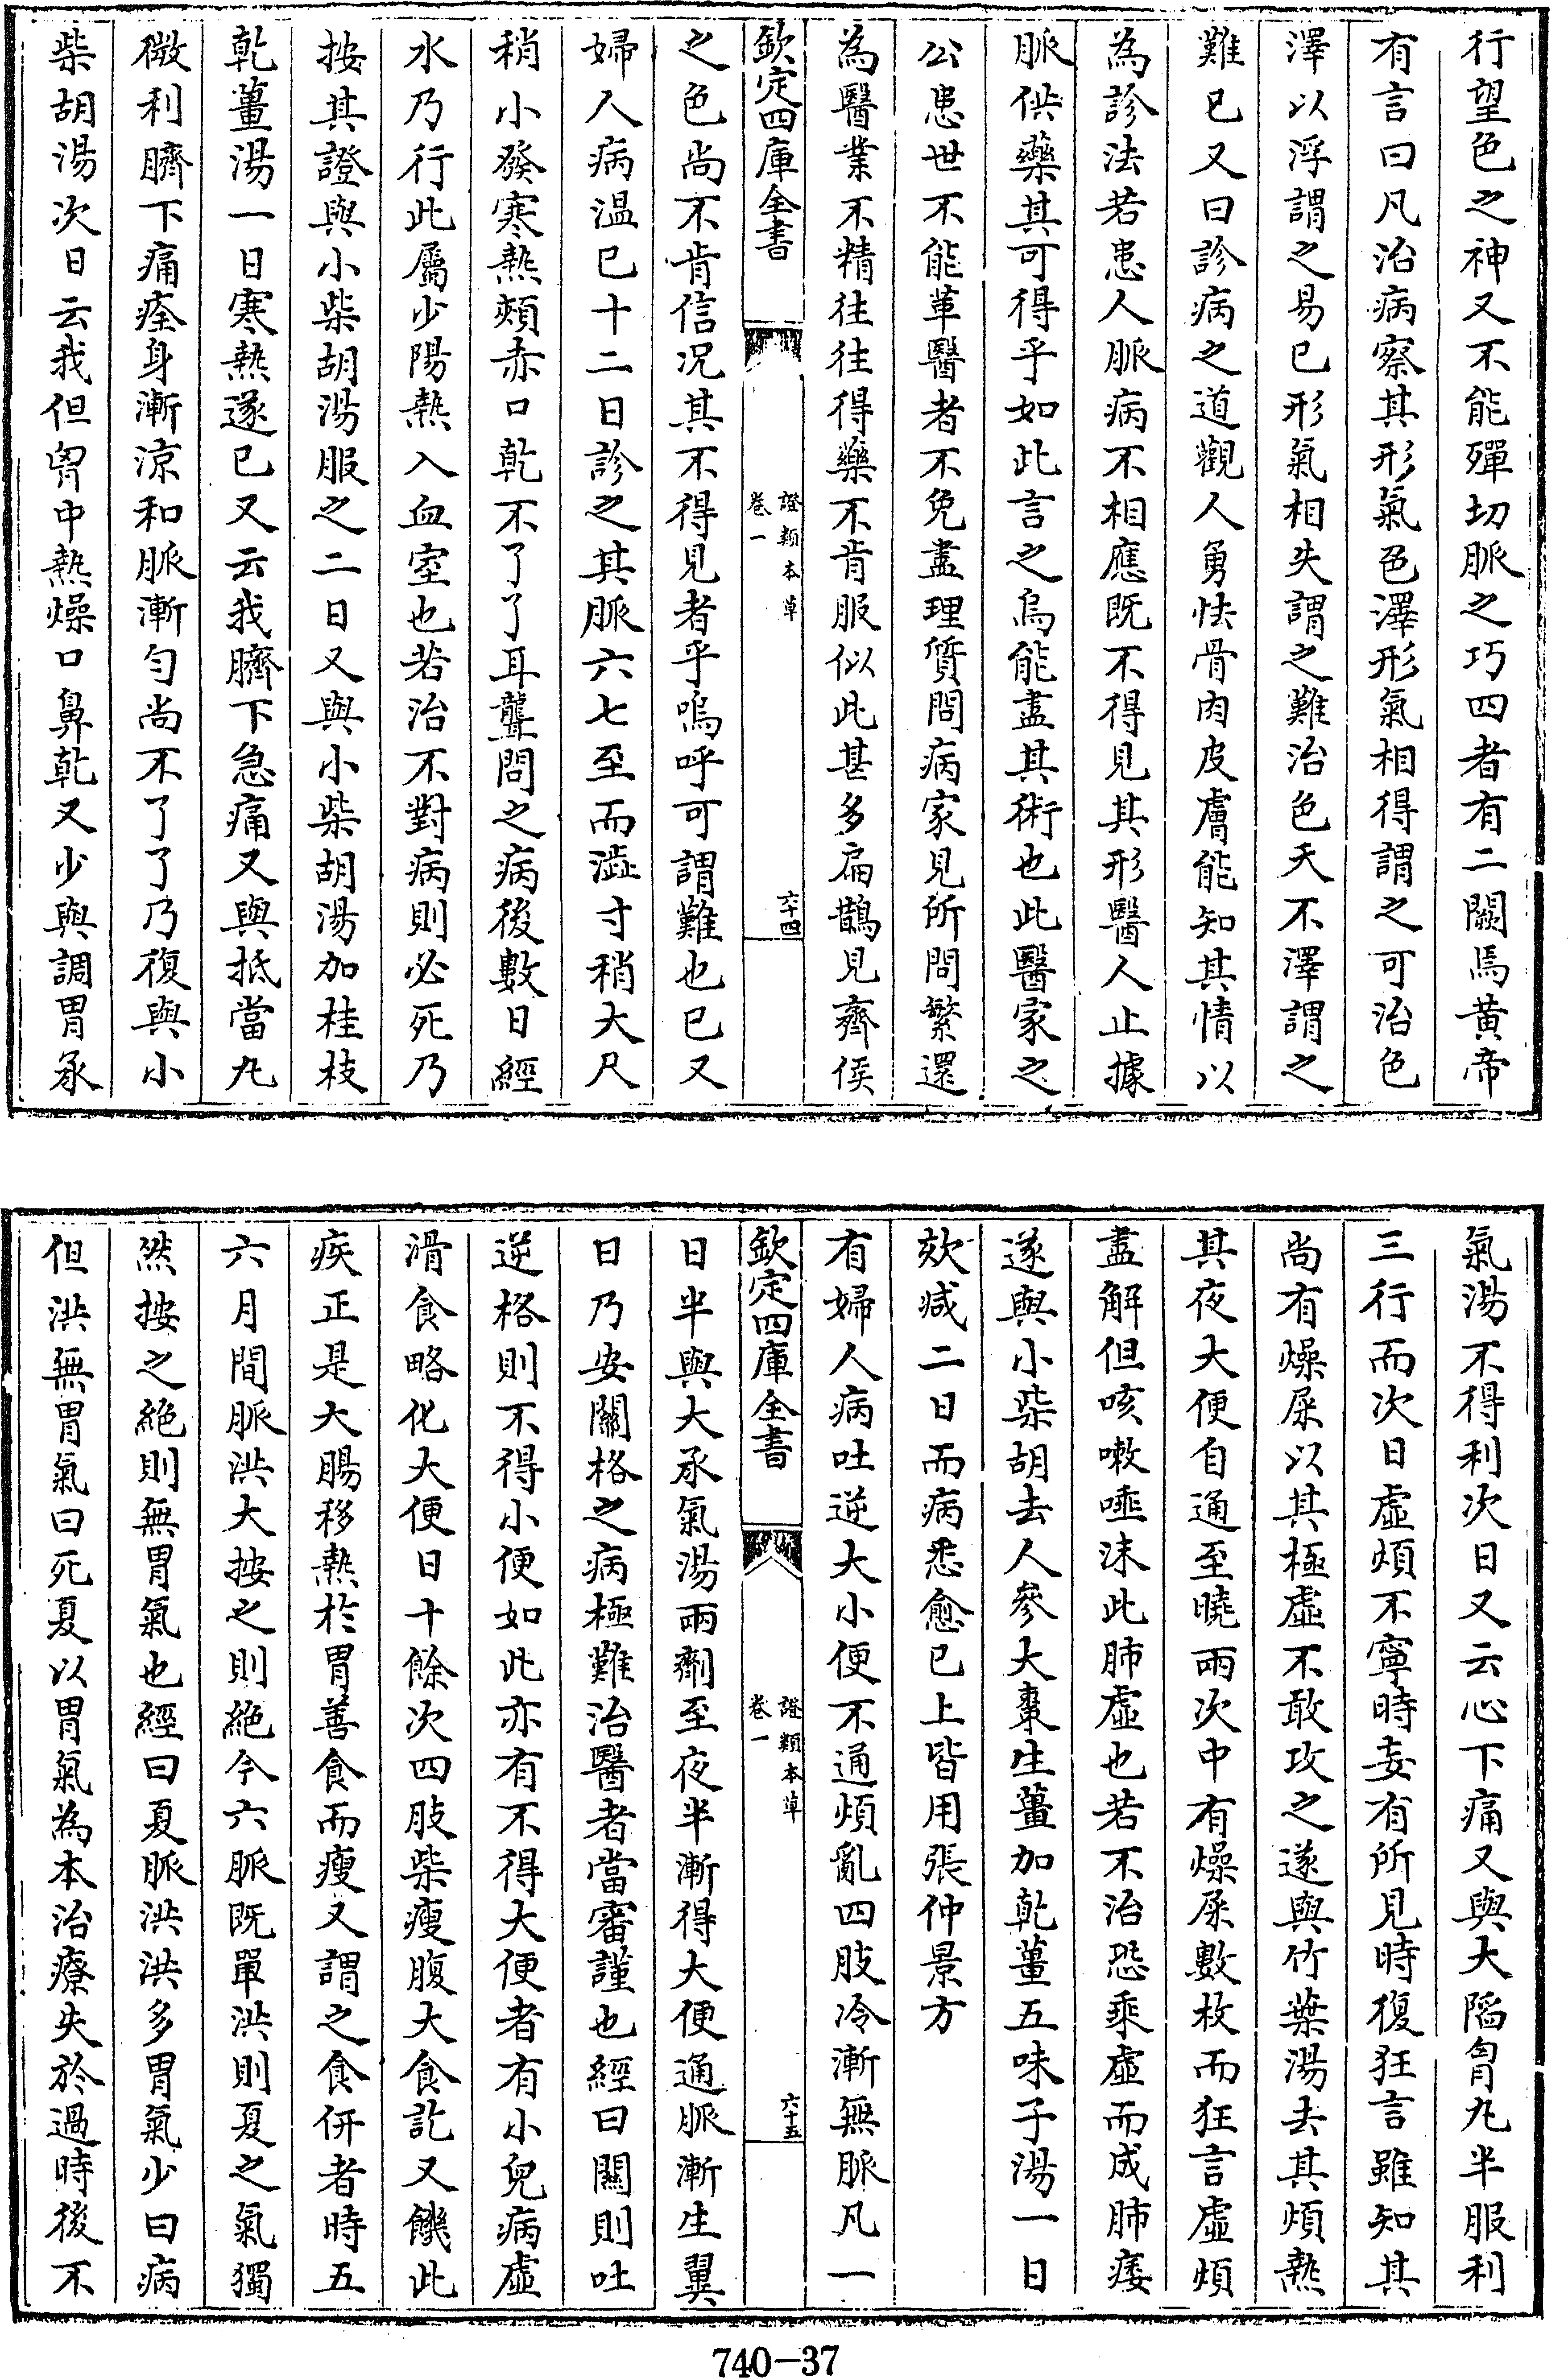 行望色之神又不能殫切脈之巧四者有二闕焉黄帝
有言曰凡治病察其形氣色澤形氣相得謂之可治色
澤以浮謂之易已形氣相失謂之難治色夭不澤謂之
難已又曰診病之道觀人勇怯骨肉皮膚能知其情以
為診法若患人脈病不相應既不得見其形醫人止據
脈供藥其可得乎如此言之烏能盡其術也此醫家之
公患世不能革醫者不免盡理質問病家見所問繁還
為醫業不精往往得藥不肯服似此甚多扁鵲見齊侯
欽定四庫全書
證類本草
卷一
六十四
之色尚不肯信况其不得見者乎嗚呼可謂難也已又
婦人病温已十二日診之其脈六七至而澁寸稍大尺
稍小發寒熱頰赤口乾不了了耳聾問之病後數日經
水乃行此屬少陽熱入血室也若治不對病則必死乃
按其證與小柴胡湯服之二日又與小柴胡湯加桂枝
乾薑湯一日寒熱遂已又云我臍下急痛又與抵當丸
微利臍下痛痊身漸涼和脈漸匀尚不了了乃復與小
柴胡湯次日云我但胷中熱燥口鼻乾又少與調胃承
氣湯不得利次日又云心下痛又與大陷胷丸半服利
三行而次日虛煩不寧時妄有所見時復狂言雖知其
尚有燥屎以其極虛不敢攻之遂與竹葉湯去其煩熱
其夜大便自通至曉兩次中有燥屎數枚而狂言虛煩
盡解但咳嗽唾沫此肺虛也若不治恐乘虛而成肺痿
遂與小柴胡去人參大棗生薑加乾薑五味子湯一日
欬减二日而病悉愈已上皆用張仲景方
有婦人病吐逆大小便不通煩亂四肢冷漸無脈凡一
欽定四庫全書
證類本草
卷一
六十五
日半與大承氣湯兩劑至夜半漸得大便通脈漸生翼
日乃安關格之病極難治醫者當審謹也經曰關則吐
逆格則不得小便如此亦有不得大便者有小兒病虛
滑食略化大便日十餘次四肢柴瘦腹大食訖又饑此
疾正是大腸移熱於胃善食而瘦又謂之食㑊者時五
六月間脈洪大按之則絶今六脈既單洪則夏之氣獨
然按之絶則無胃氣也經曰夏脈洪洪多胃氣少曰病
但洪無胃氣曰死夏以胃氣為本治療失於過時後不
740-37